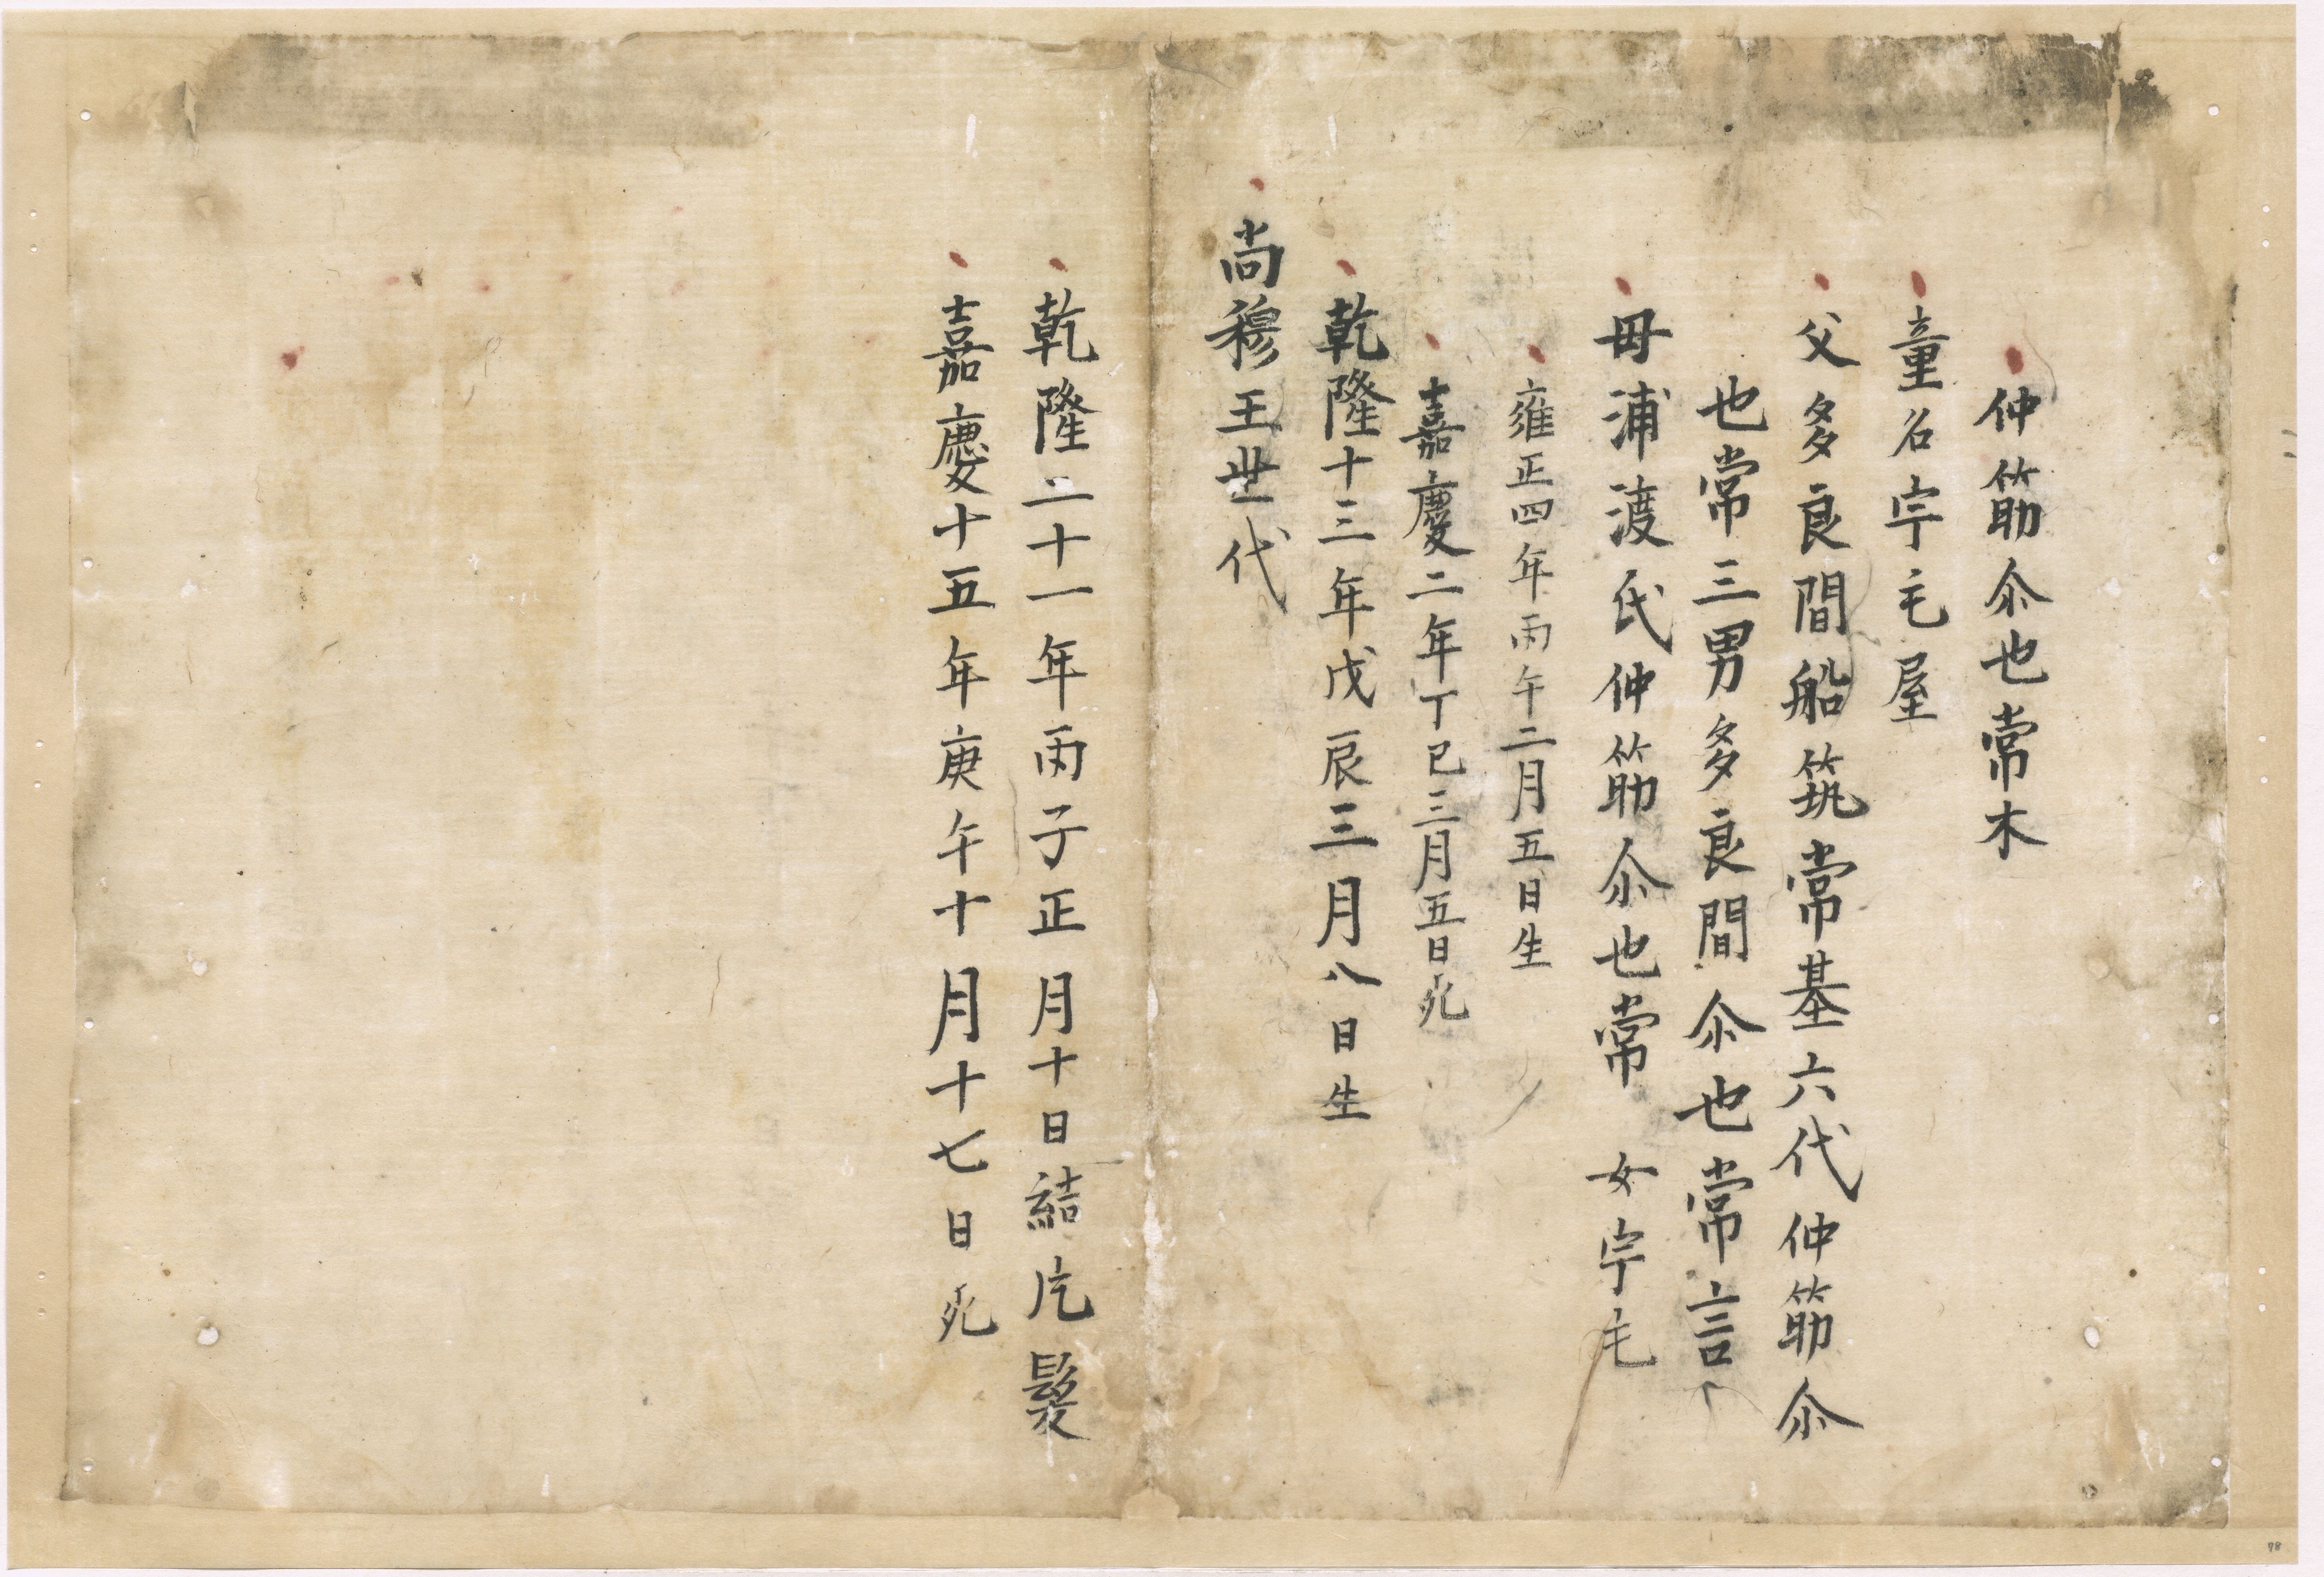 仲筋尒也常木
童名宇毛屋
父多良間船筑常基六代仲筋尒
也常三男多良間尒也常言
母浦渡氏仲筋尒也常 女宇乇
雍正四年丙午二月五日生
嘉慶二年丁巳三月五日死
乾隆十三年戊辰三月八日生
尚穆王世代
乾隆二十一年丙子正月十日結片髮
嘉慶十五年庚午十月十七日死
78